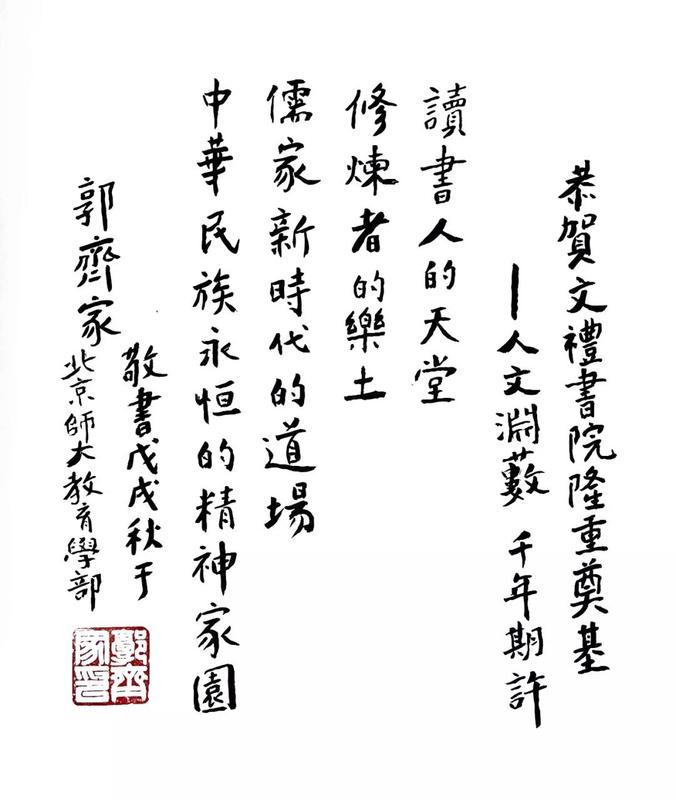 恭賀文禮書院隆重奠基
—人文淵藪 千年期許
讀書人的天堂
修煉者的樂土
儒家新時代的道場
中華民族永恒的精神家園
敬書戊戌秋于
郭齊家北京師大教育學部
郭齊家印